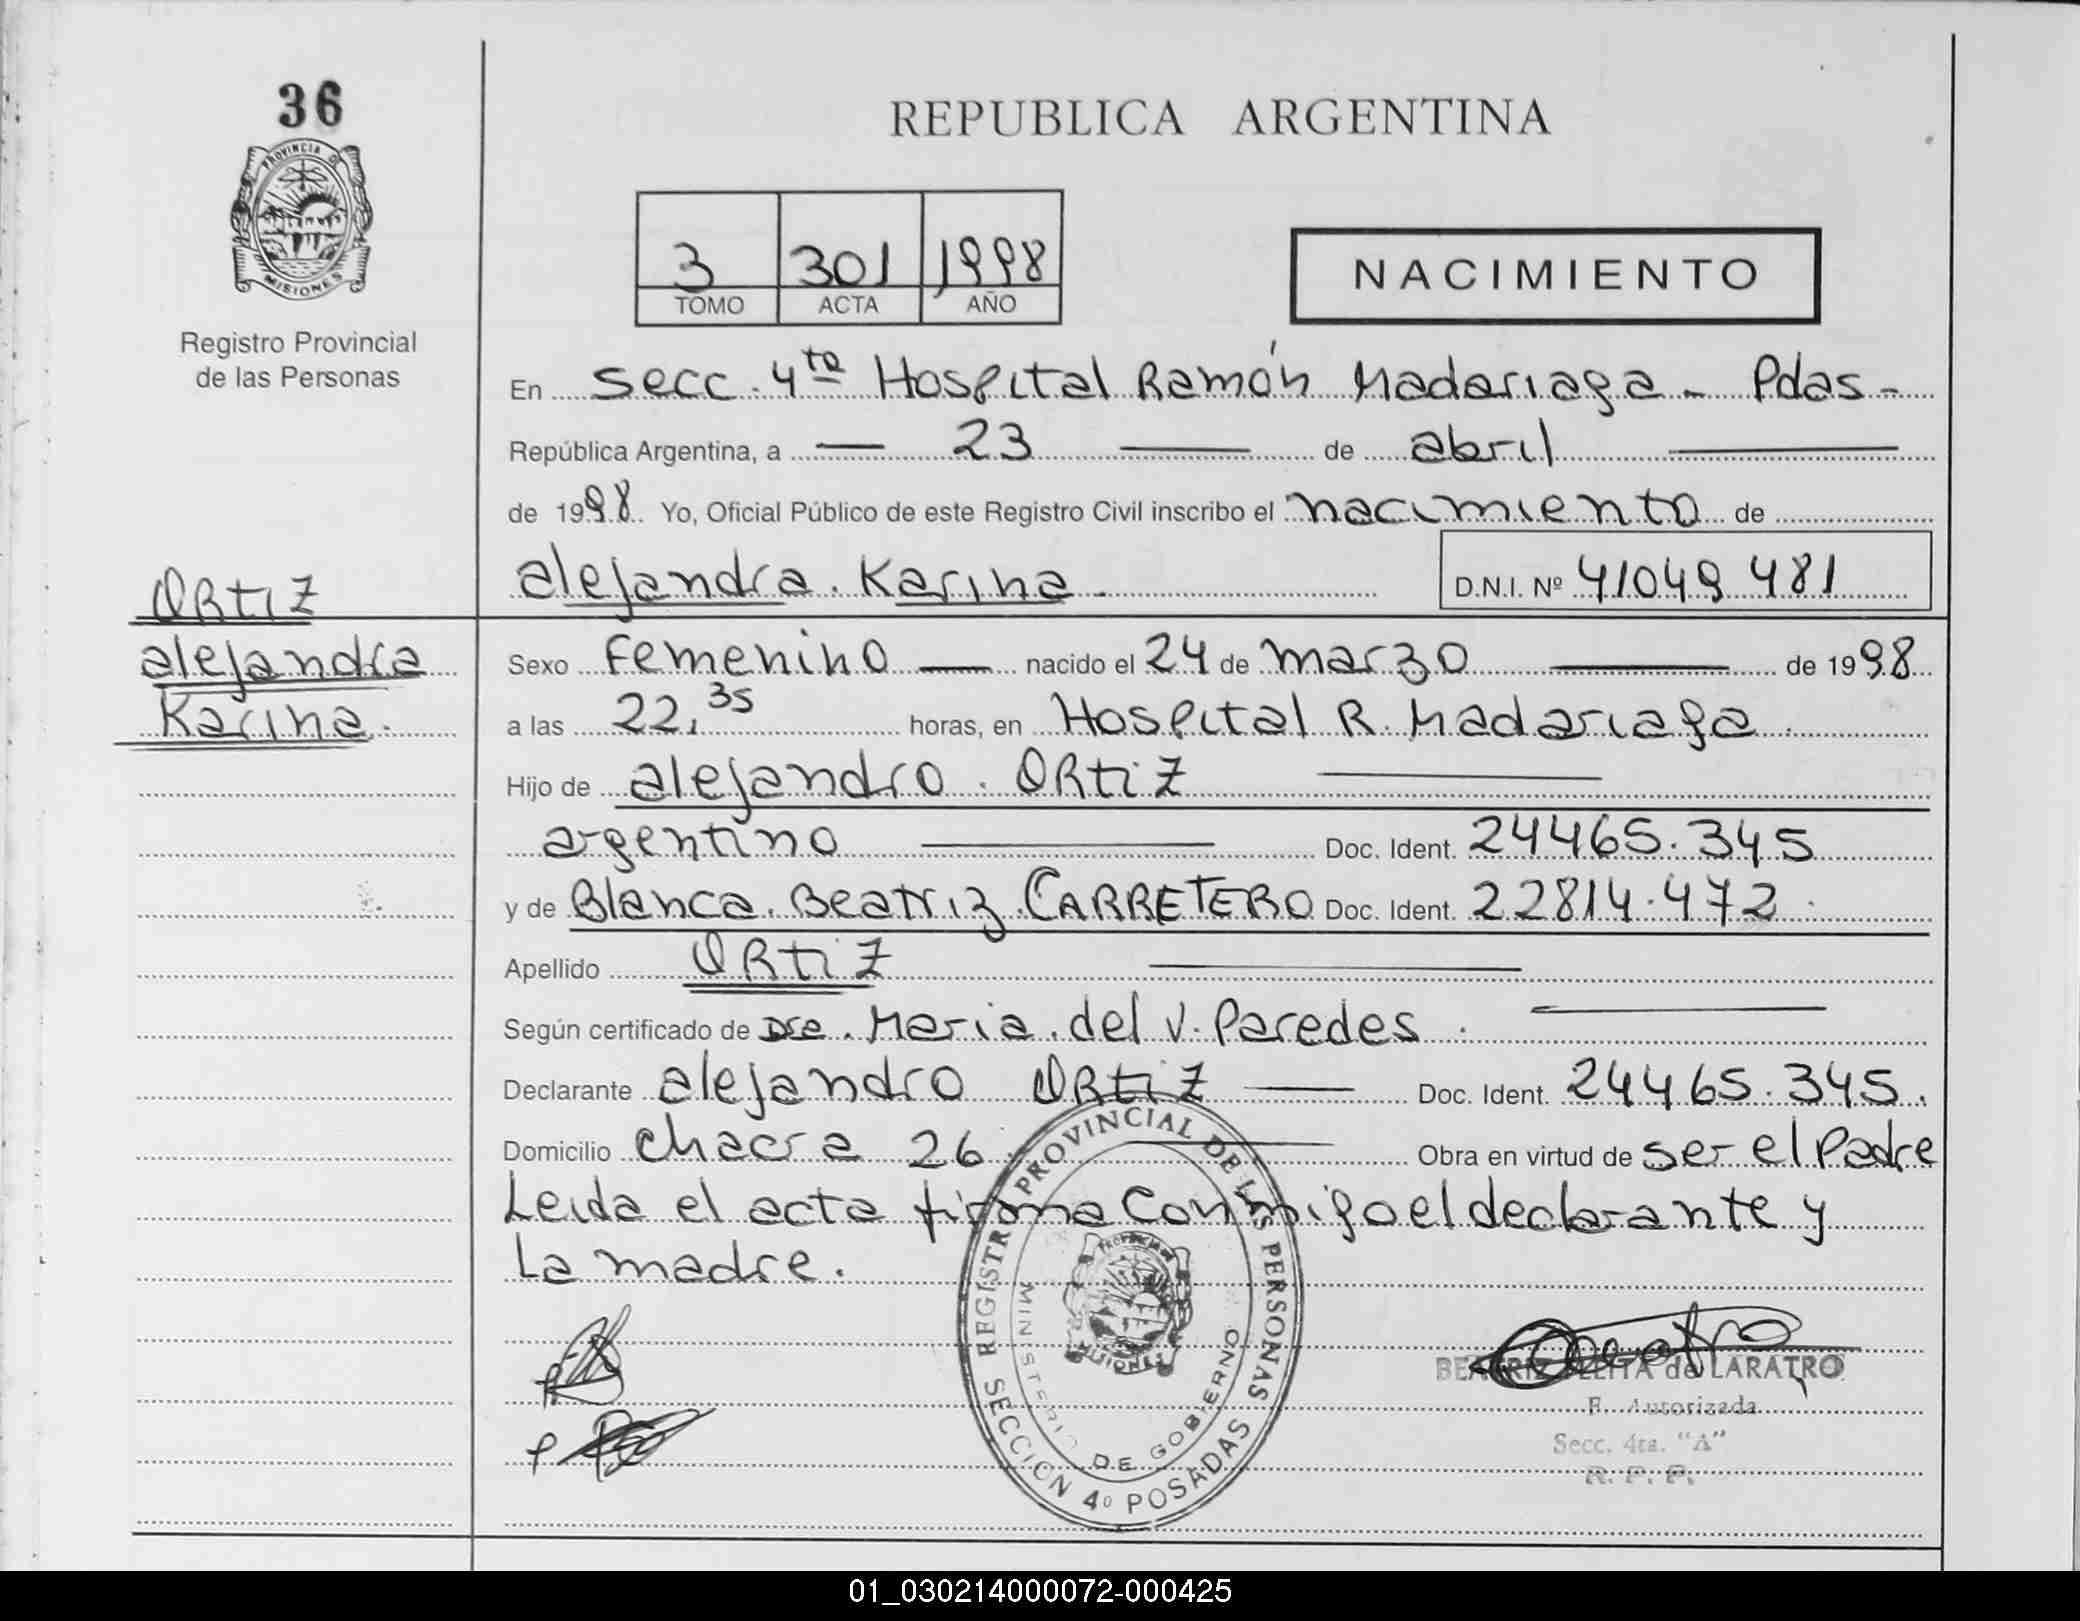 36
REPUBLICA ARGENTINA
PROVINCIA D
MISIONES
3 301 1998
TOMO ACTA AÑO
NACIMIENTO
Registro Provincial
de las Personas
En secc. 4ta Hospital Ramón Madariaga - Pdas -
República Argentina, a — 23 — de abril —
de 1998. Yo, Oficial Público de este Registro Civil inscribo el nacimiento de
alejandra Karina. D.N.I. Nº 41049 481
ORtiZ
alejandra
Karina.
Sexo Femenino — nacido el 24 de marzo — de 1998
a las 22,35 horas, en Hospital R. Madariaga.
Hijo de alejandro ORtiZ —
argentino — Doc. Ident. 24465.345
y de Blanca Beatriz CARRETERO Doc. Ident. 22814.472.
Apellido ORtiZ —
Según certificado de Dra. Maria del V. Paredes. —
Declarante alejandro ORtiZ — Doc. Ident. 24465.345.
Domicilio chacra 26 — Obra en virtud de ser el Padre
Leida el acta firma conmigo el declarante y
La madre.
REGISTRO PROVINCIAL DE LAS PERSONAS
MINISTERIO DE GOBIERNO
MISIONES
SECCION 4º POSADAS
BEATRIZ de LARATRO
F. Autorizada
Secc. 4ta. "A"
R. P. P.
01_030214000072-000425